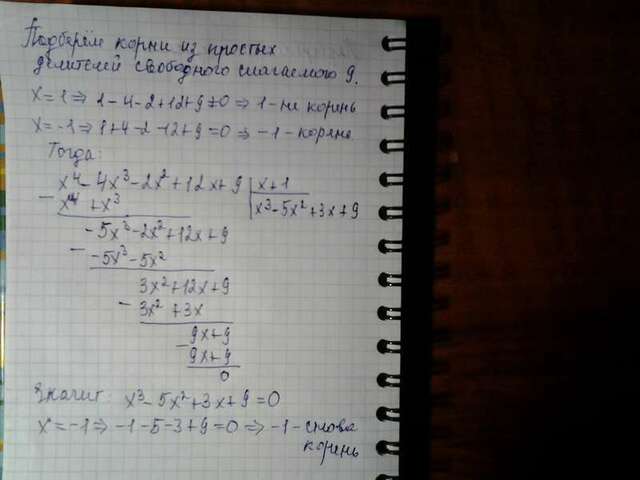 Подберём корни из простых
делителей свободного слагаемого 9.
x=1 ⇒ 1-4-2+12+9≠0 ⇒ 1-не корень
x=-1 ⇒ 1+4-2-12+9=0 ⇒ -1-корень.
Тогда:
x⁴-4x³-2x²+12x+9 | x+1
- x⁴+x³ | x³-5x²+3x+9
-5x³-2x²+12x+9
- -5x³-5x²
3x²+12x+9
- 3x²+3x
9x+9
- 9x+9
0
Значит: x³-5x²+3x+9=0
x=-1 ⇒ -1-5-3+9=0 ⇒ -1-снова
корень